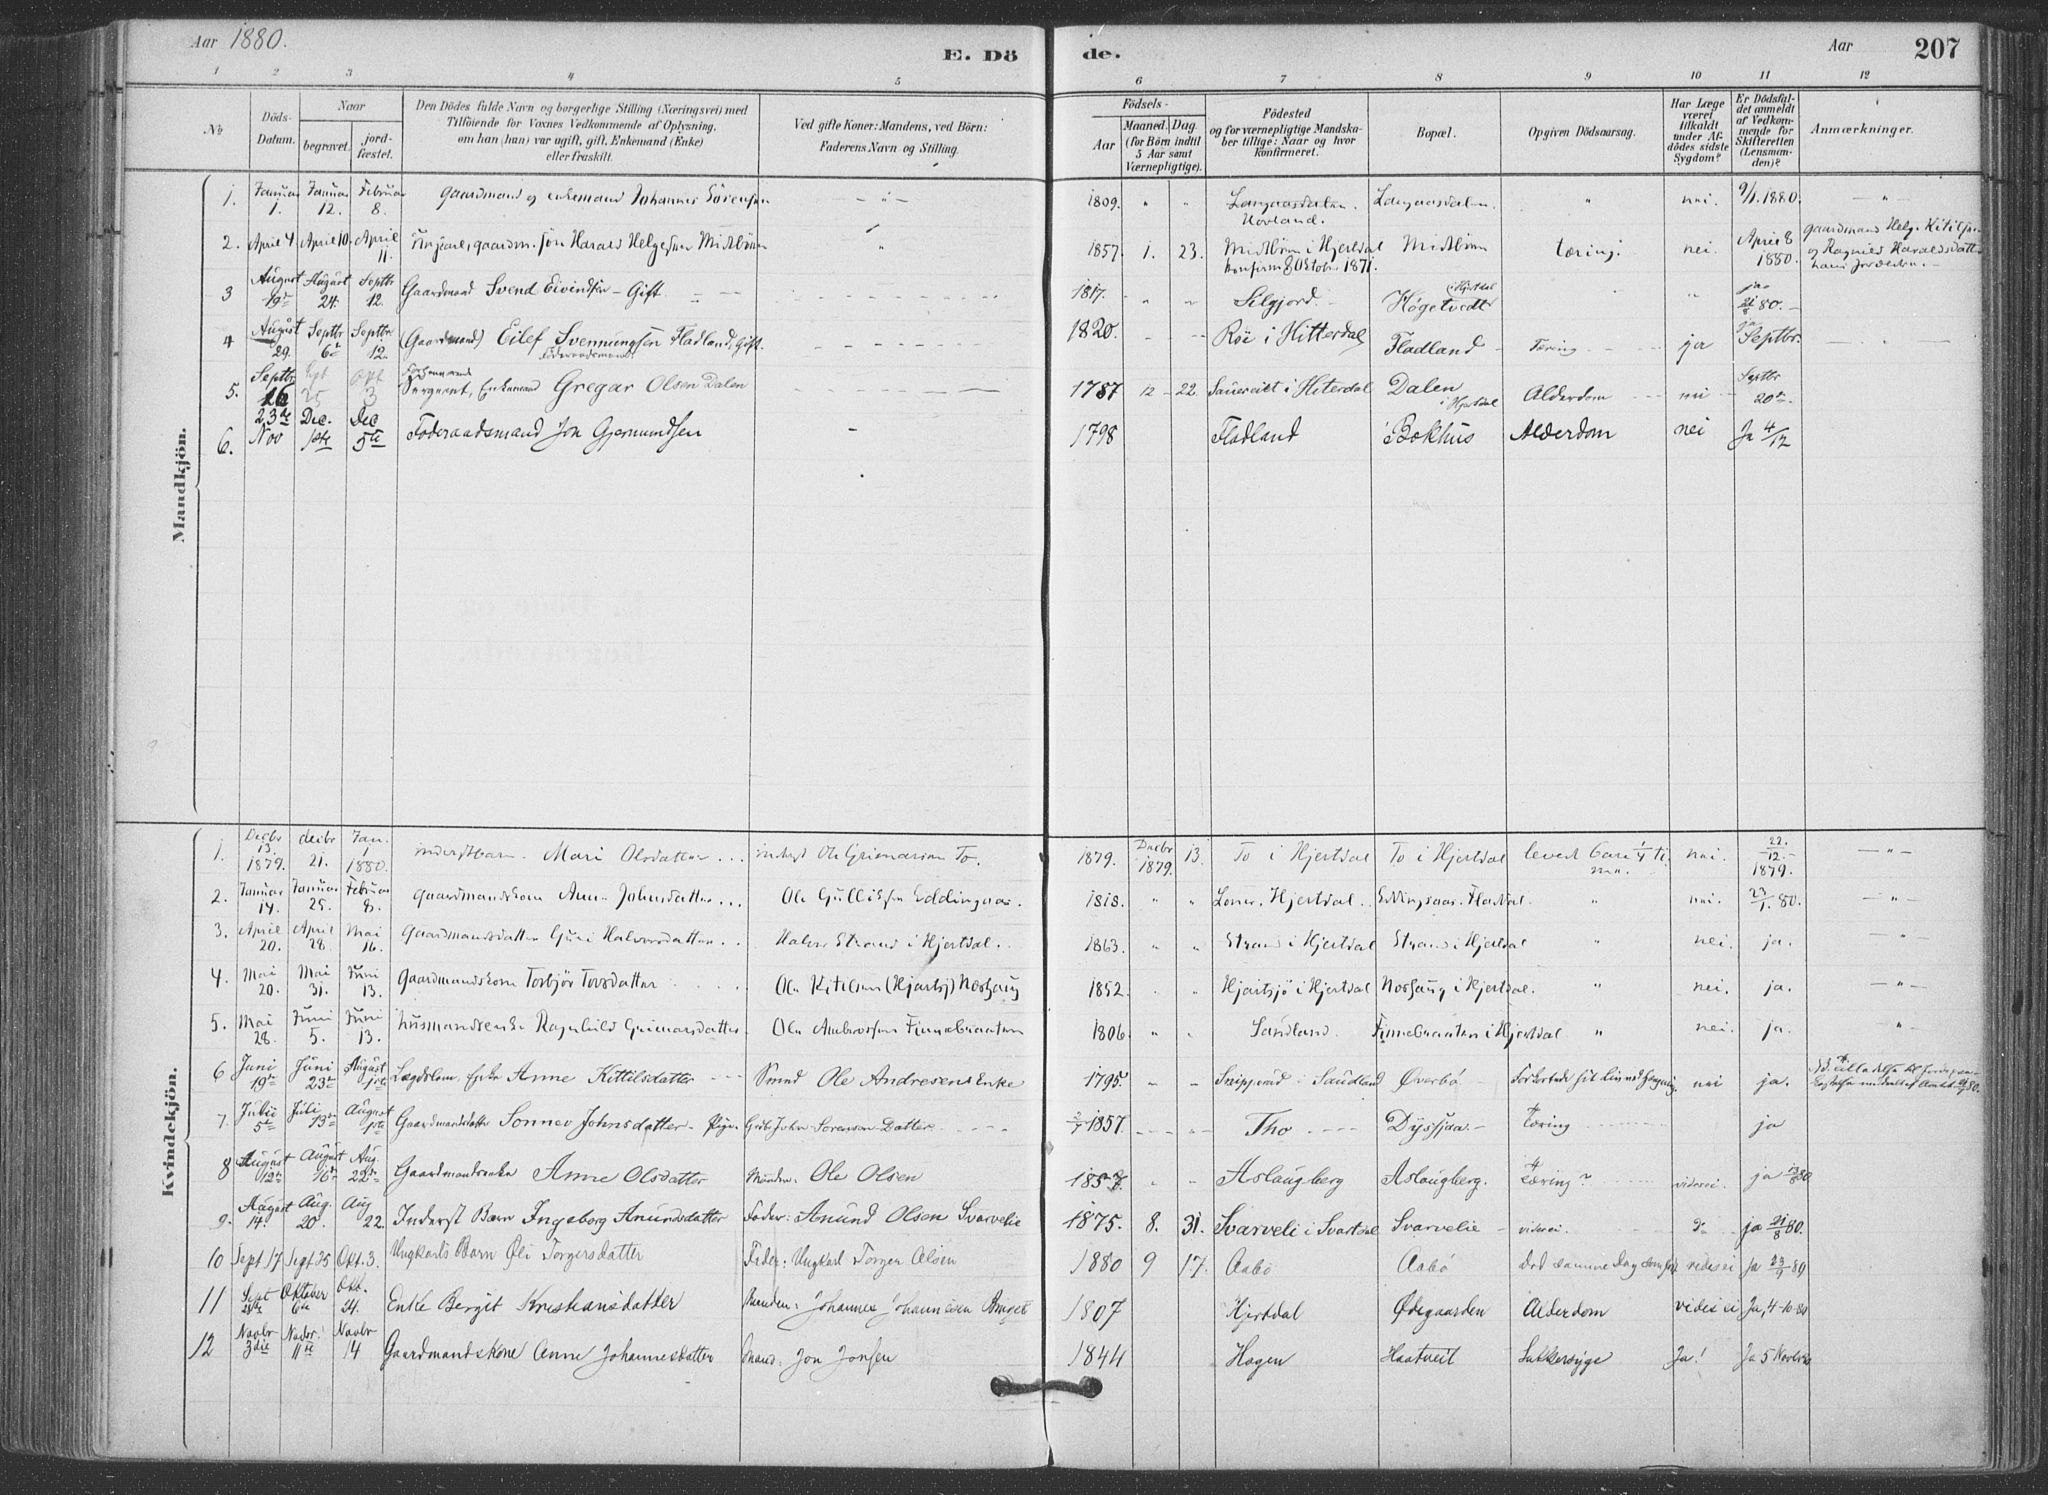 Aar 1880. E. Döde. Aar 207
1 2 3 4 5 6 7 8 9 10 11 12
No
Döds-Datum.
Naar
begravet.
jordfæstet.
Den Dödes fulde Navn og borgerlige Stilling (Næringsvei) med
Tilföiende for Voxnes Vedkommende af Oplysning,
om han (hun) var ugift, gift, Enkemand (Enke)
eller fraskilt.
Ved gifte Koner: Mandens, ved Börn:
Faderens Navn og Stilling.
Födsels-
Aar
Maaned. Dag.
(for Börn indtil
5 Aar samt
Værnepligtige).
Födested
og for værnepligtige Mandska-
ber tillige: Naar og hvor
konfirmeret.
Bopæl.
Opgiven Dödsaarsag.
Har Læge
været
tilkaldt
under Af-
dödes sidste
Sygdom?
Er Dödsfal-
det anmeldt
af Vedkom-
mende for
Skifteretten
(Lensman-
den)?
Anmærkninger.
Mandkjön.
1. Januar 1. Januar 12. Februar 8. gaardmand og enkemand Johannes Sörensen 1809. " " Langaasdalen. Hovland. Langaasdalen. " nei. 9/1. 1880. - " -
2. April 4 April 10 April 11. Ungkarl, gaardm. sön Harald Helgesen Midtbönn " 1857. 1. 23. Midtbönn i Hjertdal Konfirm 8 Oktob. 1871. Midtbönn tæring. nei April 8 1880. gaardmand Helge Kitilsen og Ragnild Haraldsdatter hans forældre.
3 August 19de August 24. Septbr 12. Gaardmand Svend Eivindsen - Gift 1817. " Seljord Högetvedt i Hjertdal " " ja 21/8 80.
4 August 29. Septbr 6te Septbr 12. (Gaardmand) Eilef Svennungsen Fladland, Gift. Föderaadsmand 1820. Röe i Hitterdal Fladland Tæring ja ja Septbr.
5. Septbr 16 Spt 25 Okt 3 Forhenværende Sergeant, Enkemand Gregar Olsen Dalen 1787 12 22 Sauereidt i Hiterdal Dalen i Hjertdal Alderdom nei Septbr 20de
6. 23de Nov Dec. 1ste Dec 5te Föderaadsmand Jon Gjermundsen - 1798 Fladland Bokhus Alderdom nei Ja 4/12
Kvindekjön.
1. Decbr 13. 1879. decbr 21. Jan. 1 1880. inderstbarn Mari Olsdatter ... inderst Ole Grimarsen To. 1879. Decbr 1879. 13. To i Hjertdal To i Hjertdal levet bare 1/4 time. nei. 22/12 1879. - " -
2. Januar 14. Januar 25. Februar 8. gaardmandskone Anne Johnsdatter ... Ole Gulliksen Eddingsaas. 1818. " " Loner, Hjertdal. Eddingsaas. Flatdal " nei. 23/1. 80. - " -
3. April 20. April 28. Mai 16. Gaardmandsdatter Guri Halvorsdatter .. Halvor Strand i Hjertdal. 1863. " " Strand i Hjertdal Strand i Hjertdal " nei. ja. - " -
4. Mai 20. Mai 31. Juni 13. Gaardmandskone Torbjör Torsdatter Ole Kitilsen (Hjartsj) Norhaug 1852. " " Hjartsjö i Hjertdal Norhaug i Hjertdal. " nei. ja. - " -
5. Mai 28. Juni 5. Juni 13. husmandsenke Ragnhild Grimarsdatter Ole Ambrossen Finnebraaten 1806. " " Saudland. Finnebraaten i Hjertdal " nei. ja. - " -
6 Juni 19de Juni 23de August 1ste Lægdslem, Enke Anne Kittilsdatter Smed Ole Andresens Enke 1795. " " Saudland Överbö nei ja.
7. Julii 5te Juli 13de August 1ste Gaardmandsdatter Sonnev Johnsdatter - Pige Grbr John Sorenson Datter 2/7 1857. Tho Dyssjaa Tæring ja
8 August 12de August 16de Aug. 22de Gaardmandsenke Anne Olsdatter Manden: Ole Olsen " " Aslaugberg Aslaugberg. Tæring? vides ei. ja 13/8 80
9. August 14. Aug. 20. Aug 22. Inderst Barn Ingeborg Anundsdatter Fader: Anund Olsen Svarvelie 1875. 8. 31. Svarveli i Svartdal Svarvelie vides ei. do ja 21/8 80.
10 Sept 17 Sept 25 Okt. 3 Ungkarls Barn Öli Torgersdatter Fader: Ungkarl Torger Olsen 1880 9 17. Aabö Aabö Död samme Dag som föd vides ei Ja 23/9 80
11 Sept 28de Oktober 6te Okt. 24. Enke Bergit Kristiansdatter Manden: Johannes Johannesen 1807 Hjertdal Ödegaarden Alderdom vides ei Ja, 4-10-80
12 Novbr 3die Novbr. 11te Novbr 14 Gaardmandskone Anne Johannesdatter Mand: Jon Jonsen 1844 Hagen Haatveit Sukkersyge Ja! Ja 5 Novbr 80